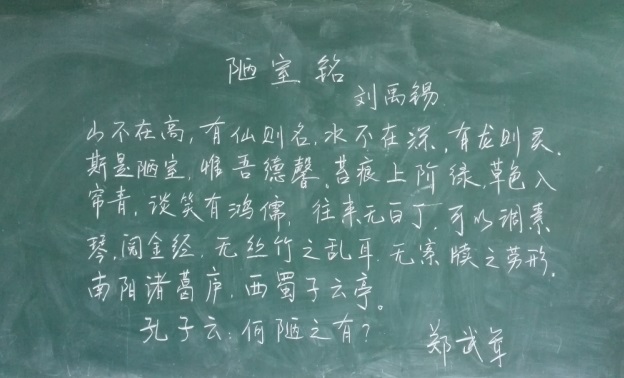 陋室铭
刘禹锡
山不在高,有仙则名.水不在深,有龙则灵.
斯是陋室,惟吾德馨.苔痕上阶绿,草色入
帘青,谈笑有鸿儒,往来无白丁,可以调素
琴,阅金经.无丝竹之乱耳,无案牍之劳形.
南阳诸葛庐,西蜀子云亭。
孔子云:何陋之有?
郑武